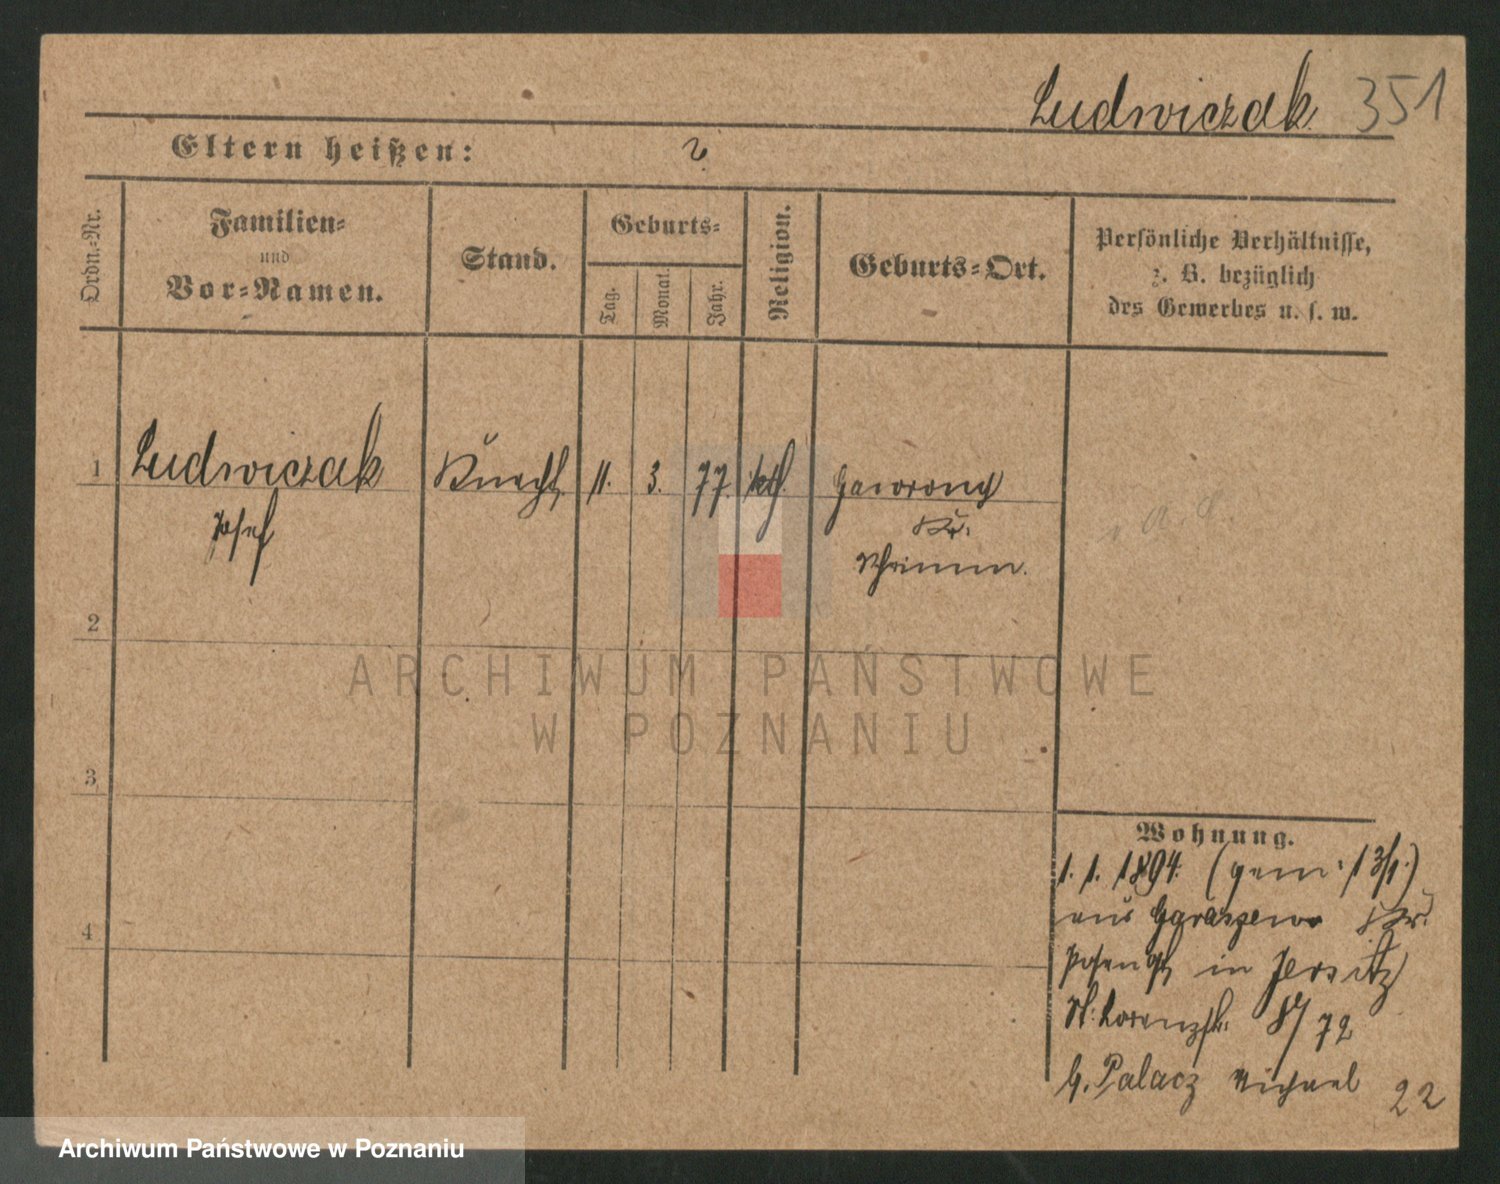 Ludwiczak 351
Eltern heißen: ?
Ordn.-Nr.
Familien-
und
Vor-Namen.
Stand.
Geburts-
Tag.
Monat.
Jahr.
Religion.
Geburts-Ort.
Persönliche Verhältnisse,
z. B. bezüglich
des Gewerbes u. s. w.
1 Ludwiczak Knecht 11. 3. 77. kth. Gaworony
Josef Kr.
Schrimm.
2
3
4
Wohnung.
1. 1. 1894. (gem: 13/1.)
aus Garaszewo Kr.
Posen Ost in Jersitz
St. Lorenzstr. 8/72
b. Palacz Michael 22
ARCHIWUM PAŃSTWOWE
W POZNANIU
Archiwum Państwowe w Poznaniu